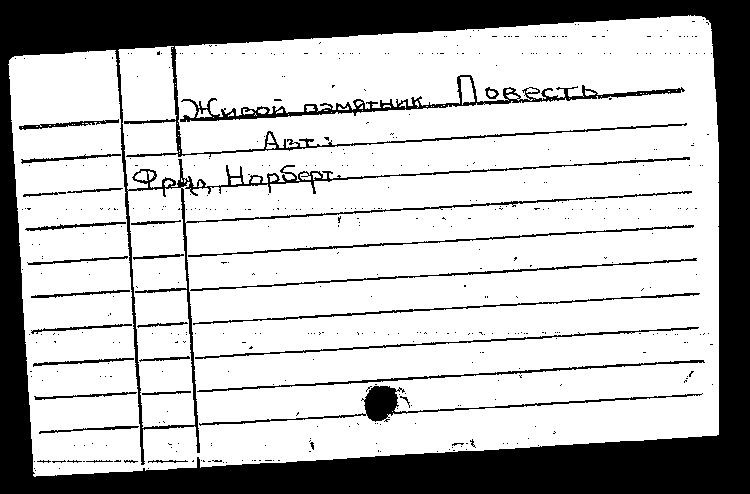 Живой памятник. Повесть.
Авт.:
Фрид, Норберт.